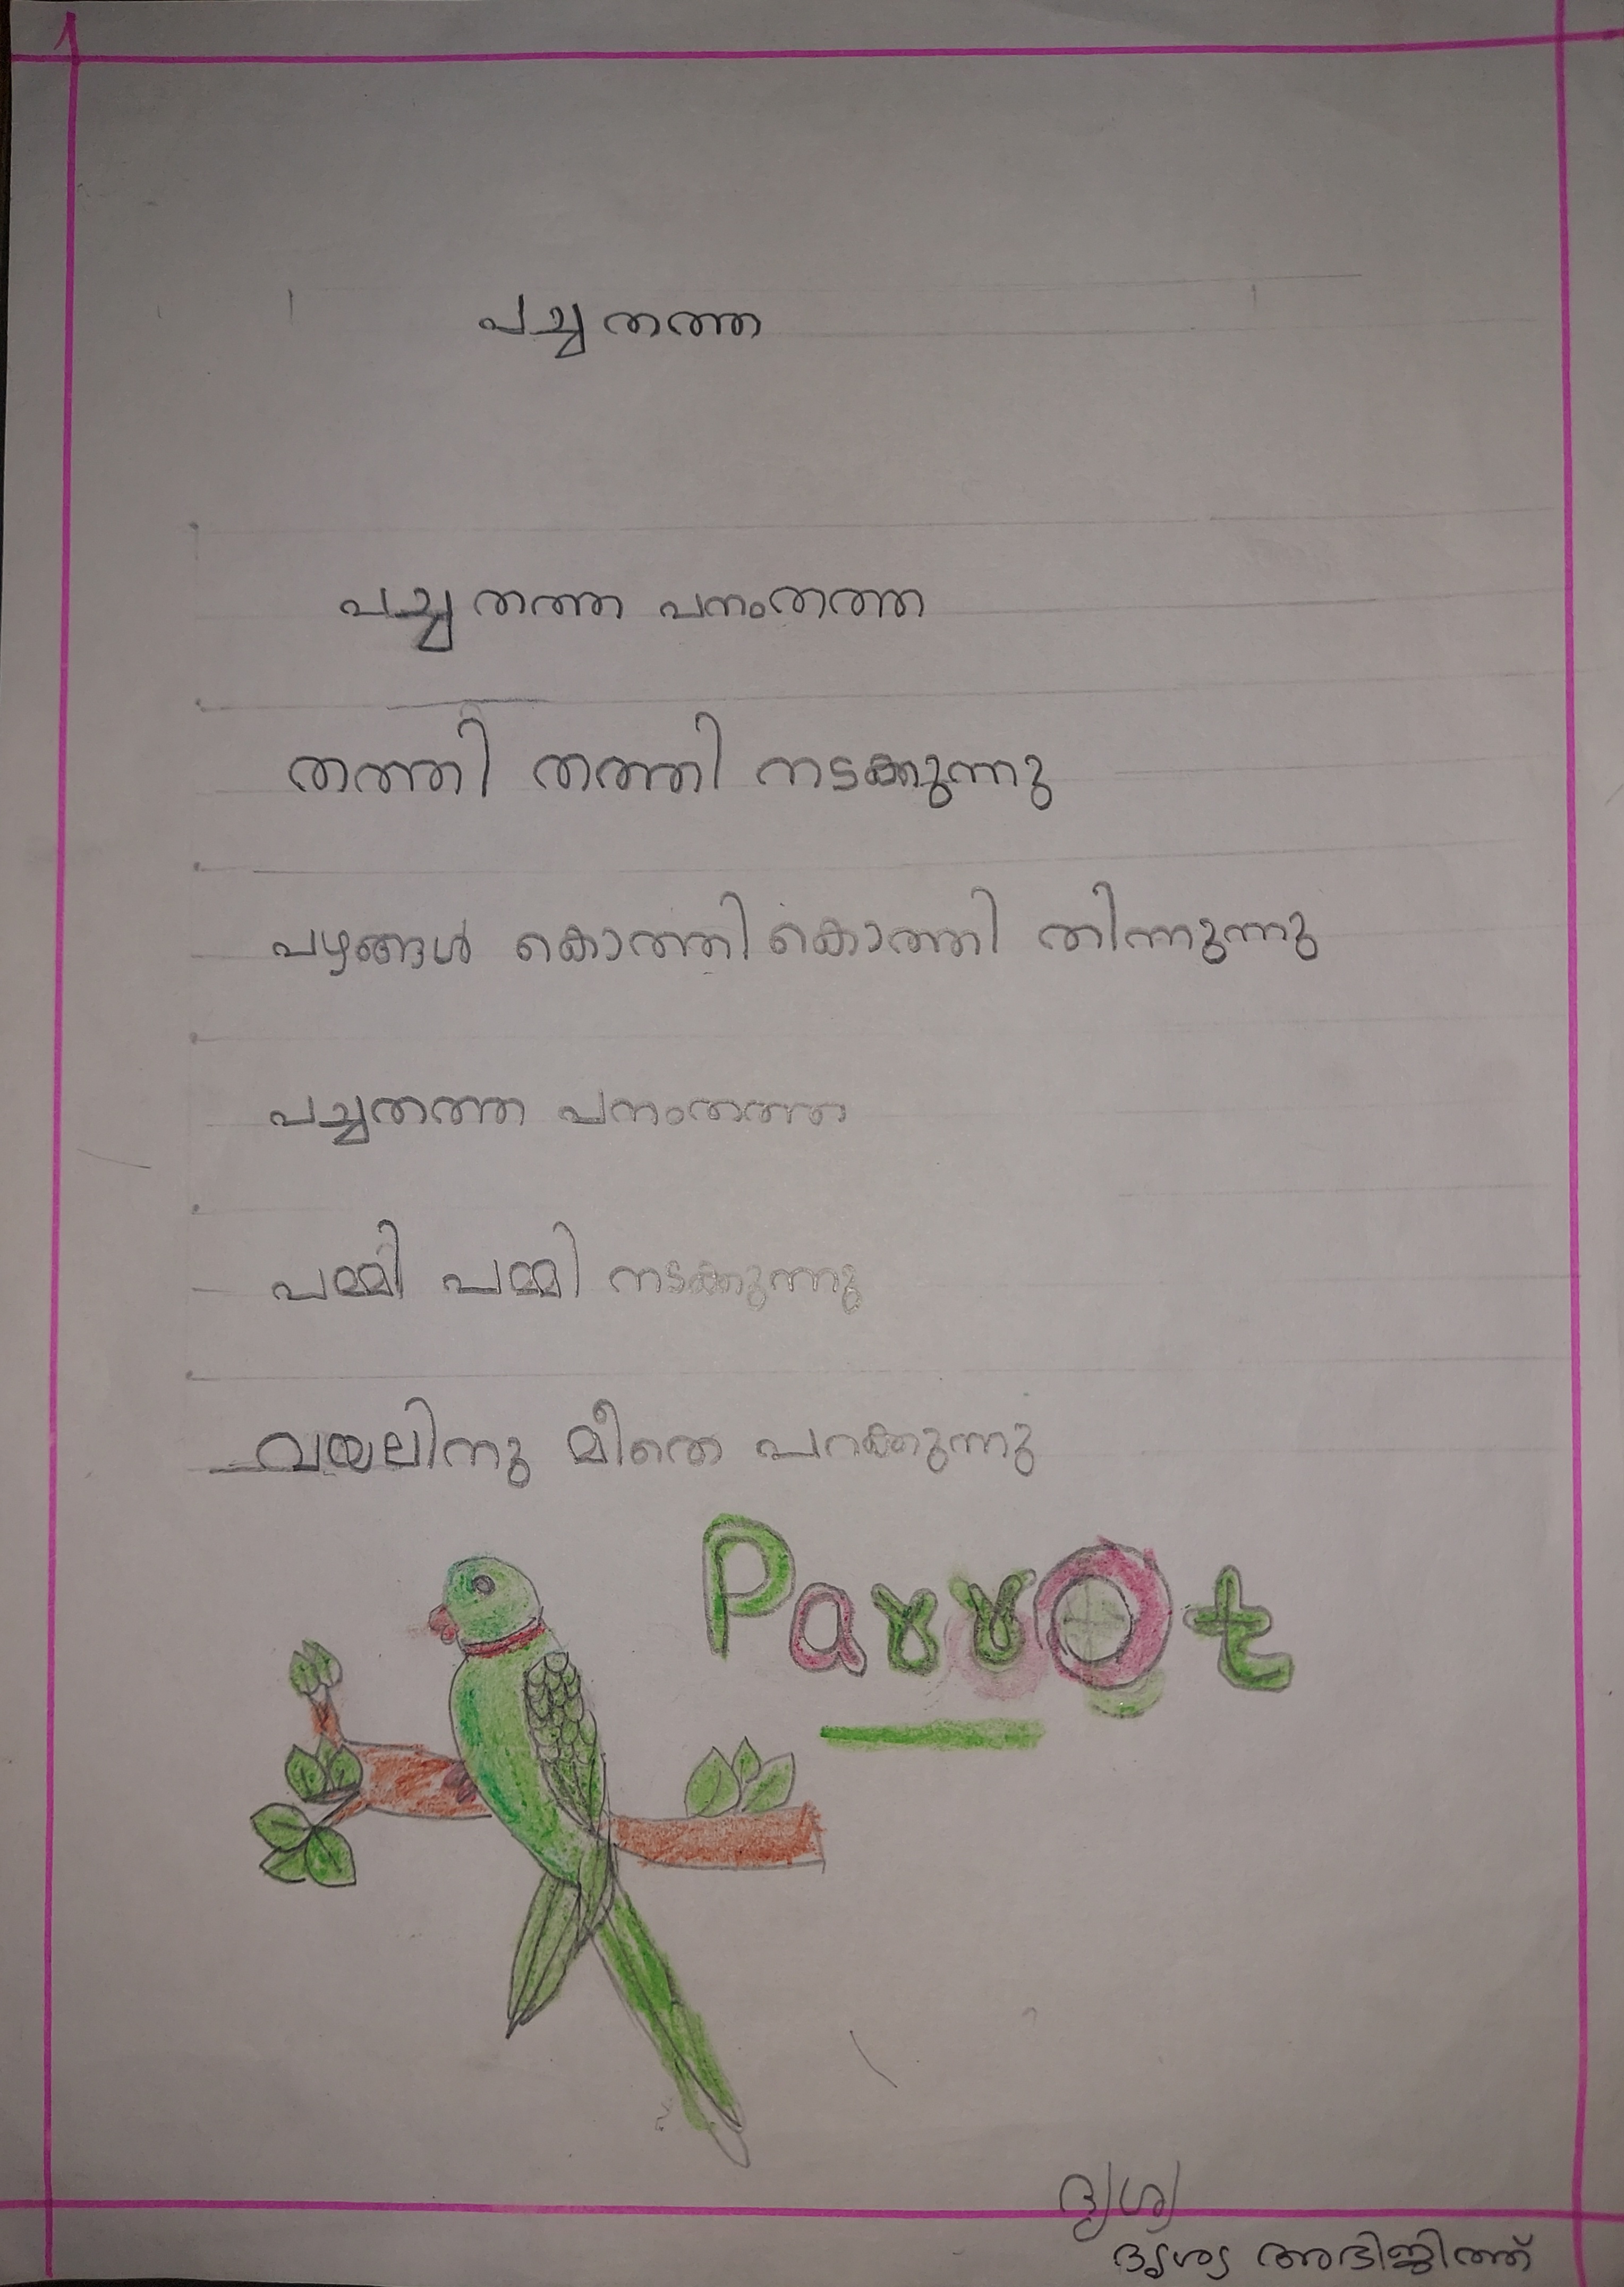 പച്ച തത്ത
പച്ച തത്ത പനംതത്ത
തത്തി തത്തി നടക്കുന്നു
പഴങ്ങൾ കൊത്തി കൊത്തി തിന്നുന്നു
പച്ചതത്ത പനംതത്ത
പമ്മി പമ്മി നടക്കുന്നു
വയലിനു മീതെ പറക്കുന്നു
Parrot
ദൃശ്യ
ദൃശ്യ അഭിജിത്ത്